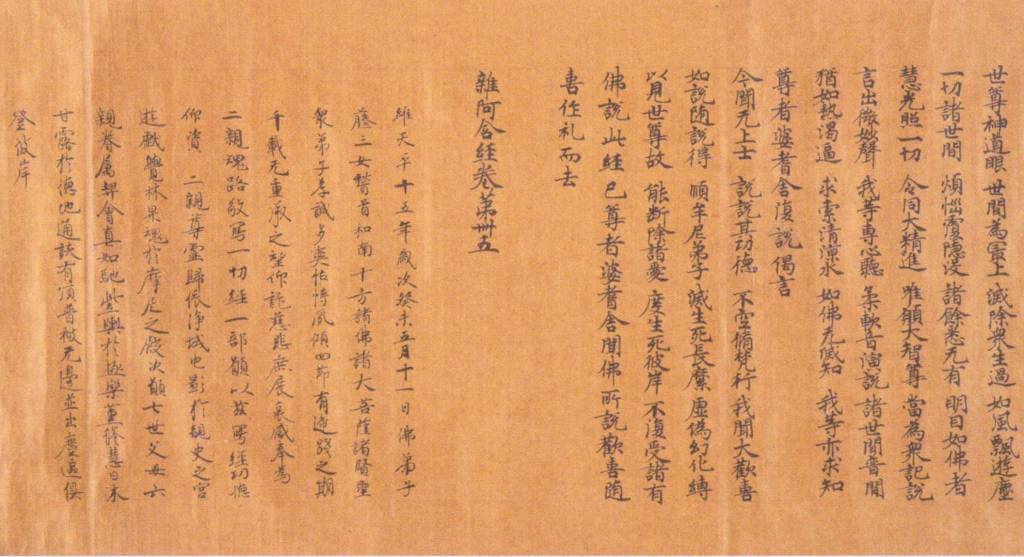 世尊神道眼 世間為冣上 滅除衆生過 如風飄遊塵
一切諸世間 煩惱覆隱没 諸餘悉无有 明目如佛者
慧光照一切 令同大精進 唯願大智尊 當為衆記說
言出微妙聲 我等專心聽 柔軟音演說 諸世間普聞
猶如熱渴逼 求索清涼水 如佛无減知 我等亦求知
尊者婆耆舍復說偈言
今聞无上士 說說其功德 不空脩梵行 我聞大歡喜
如說隨說得 順牟尼弟子 滅生死長縻 虛偽幻化縛
以見世尊故 能斷除諸愛 度生死彼岸 不復受諸有
佛說此經已尊者婆耆舍聞佛所說歡喜隨
喜作礼而去
雜阿含經卷第卌五
維天平十五年歲次癸未五月十一日佛弟子
藤三女稽首和南十方諸佛諸大菩薩諸賢聖
衆弟子孝誠多爽怙恃風傾四節有遞踐之期
千載无重承之望仰託慈悲庶展哀感奉為
二親魂路敬寫一切經一部願以茲寫經功德
仰資 二親尊靈歸依淨域曳影於覩史之宮
遊戲覺林昇魂於摩尼之殿次願七世父母六
親眷屬契會真如馳紫輿於極樂薰修慧日沐
甘露於德池通該有頂普被无邊並出塵區俱
登彼岸